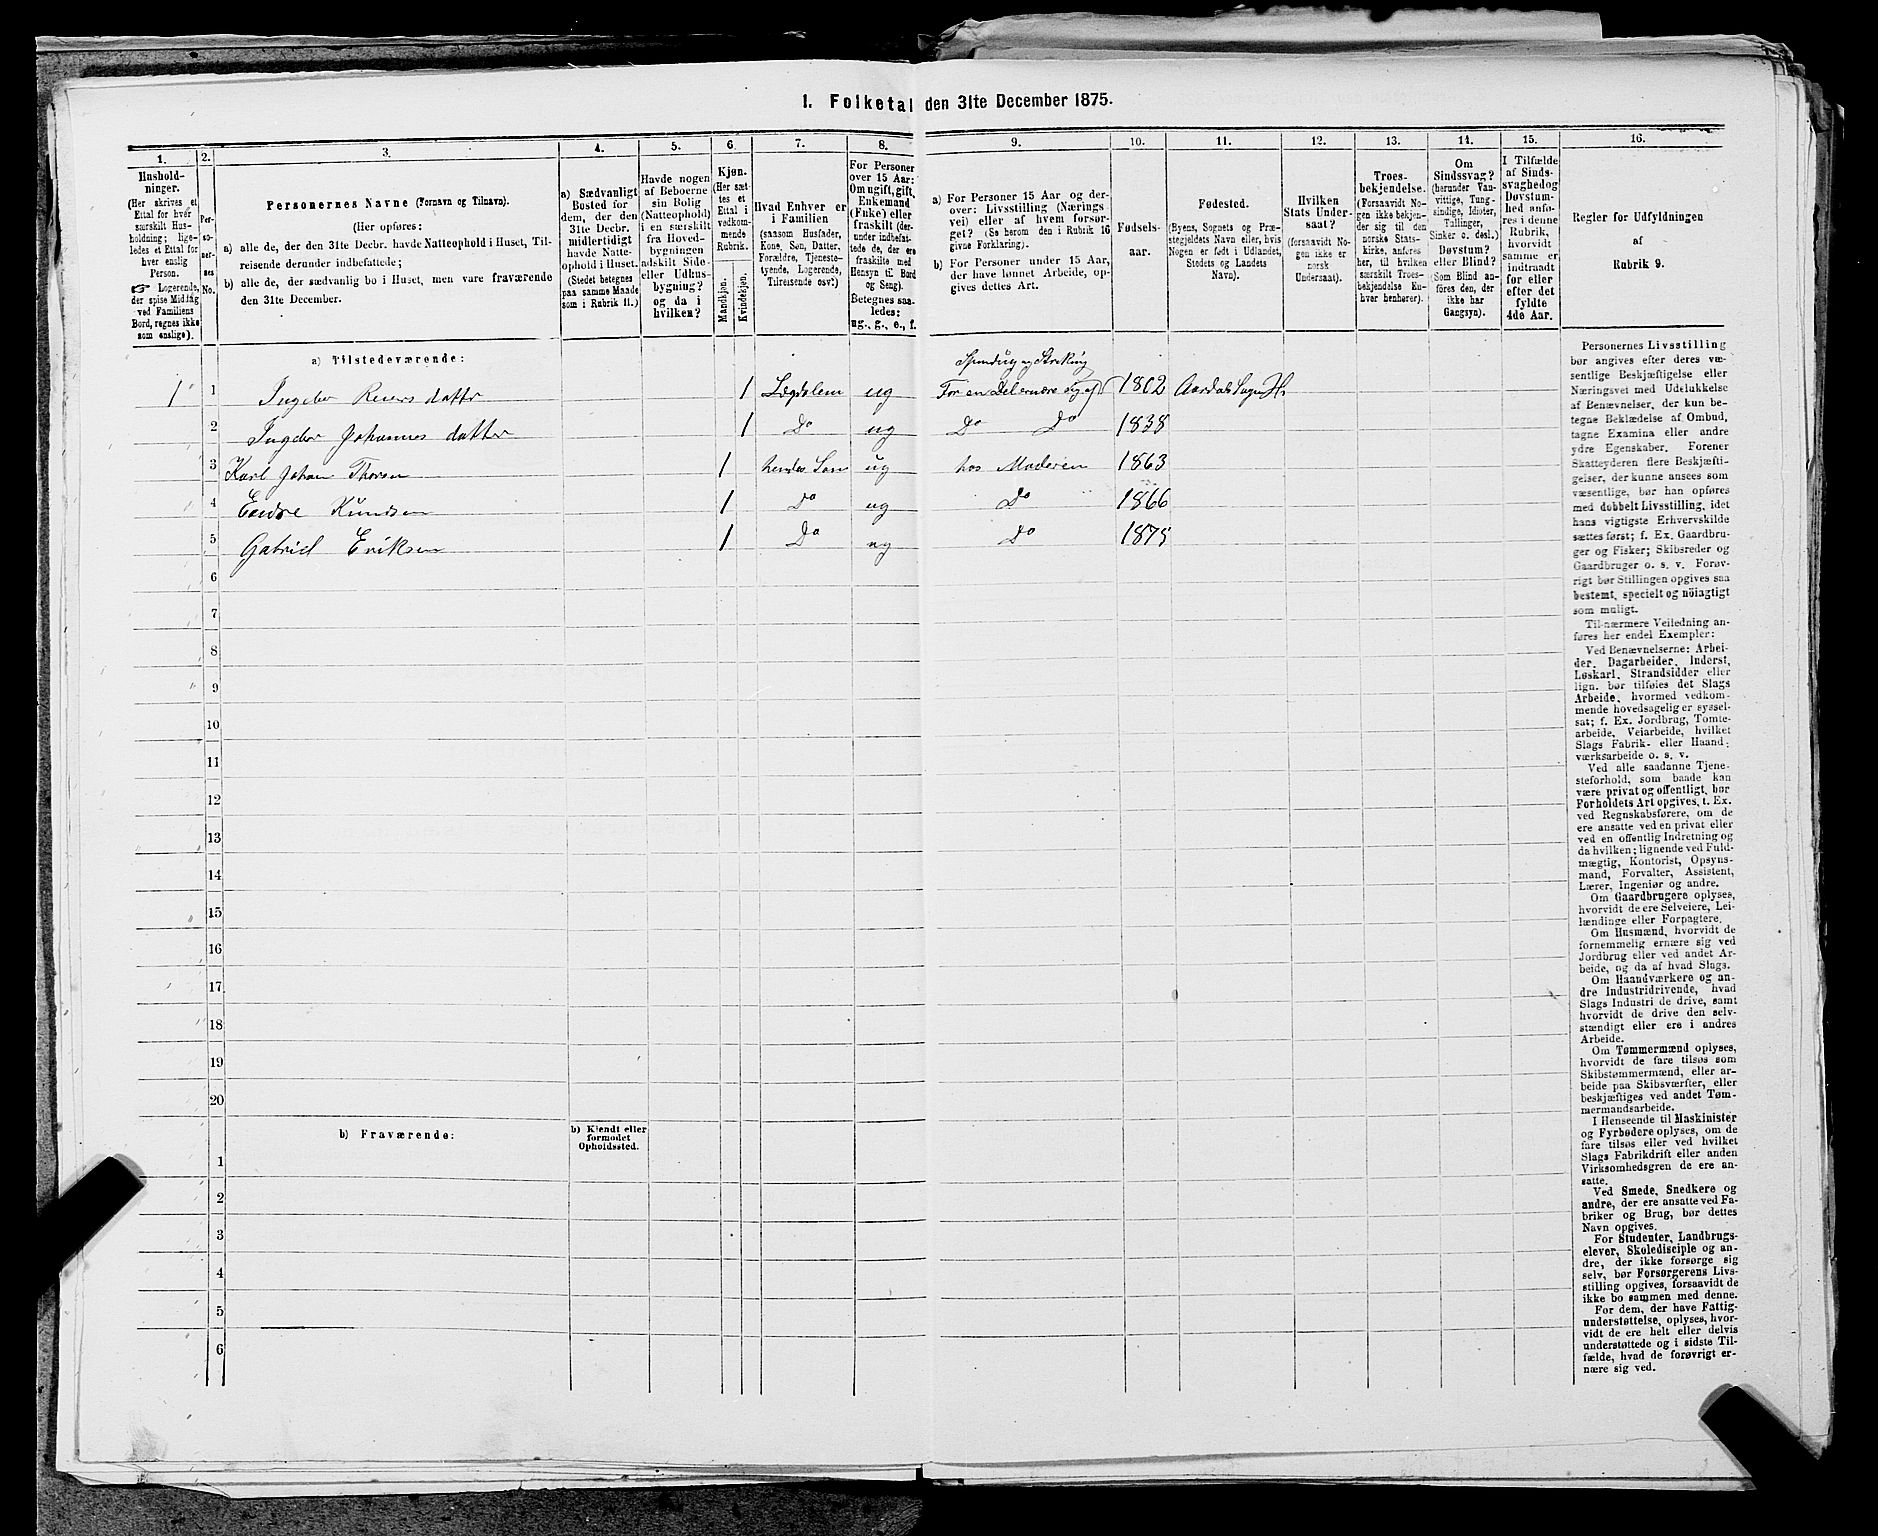 I. Folketal den 31te December 1875.
1. 2. 3. 4. 5. 6. 7. 8. 9. 10. 11. 12. 13. 14. 15. 16.
Husholdninger.
(Her skrives et
Ettal for hver
særskilt Hus-
holdning; lige-
ledes et Ettal for
hver enslig
Person.
☞ Logerende,
der spise Middag
ved Familiens
Bord, regnes ikke
som enslige).
Personernes No.
Personernes Navne (Fornavn og Tilnavn).
(Her opføres:
a) alle de, der den 31te Decbr. havde Natteophold i Huset, Til-
reisende derunder indbefattede;
b) alle de, der sædvanlig bo i Huset, men vare fraværende
den 31te December.
a) Sædvanligt
Bosted for
dem, der den
31te Decbr.
midlertidigt
havde Natte-
ophold i Huset.
(Stedet betegnes
paa samme Maade
som i Rubrik 11.)
Havde nogen
af Beboerne
sin Bolig
(Natteophold)
i en særskilt
fra Hoved-
bygningen
adskilt Side-
eller Udhus-
bygning?
og da i
hvilken?
Kjøn.
(Her sæt-
tes et
Ettal i
vedkom-
mende
Rubrik.
Mandkjøn.
Kvindekjøn.
Hvad Enhver er
i Familien
(saasom Husfader,
Kone, Søn, Datter,
Forældre, Tjeneste-
tyende, Logerende,
Tilreisende osv.)
For Personer
over 15 Aar:
Om ugift, gift,
Enkemand
(Enke) eller
fraskilt (der-
under indbefat-
tede de, der ere
fraskilte med
Hensyn til Bord
og Seng).
Betegnes saa-
ledes:
ug., g., e., f.
a) For Personer 15 Aar og der-
over: Livsstilling (Nærings
vei) eller af hvem forsør-
get? (Se herom den i Rubrik 16
givne Forklaring).
b) For Personer under 15 Aar,
der have lønnet Arbeide, op-
gives dettes Art.
Fødsels-
aar.
Fødested.
(Byens, Sognets og Præ-
stegjeldets Navn eller, hvis
Nogen er født i Udlandet,
Stedets og Landets
Navn).
Hvilken
Stats Under-
saat?
(forsaavidt No-
gen ikke er
norsk
Undersaat).
Troes-
bekjendelse.
(Forsaavidt No-
gen ikke bekjen-
der sig til den
norske Stats-
kirke, anføres
her, til hvilken
særskilt Troes-
bekjendelse En-
hver henhører).
Om
Sindssvag?
(herunder Van-
vittige, Tung-
sindige, Idioter,
Tullinger,
Sinker o. desl.)
Døvstum?
eller Blind?
(Som Blind an-
føres den, der
ikke har
Gangsyn).
I Tilfælde
af Sinds-
svaghed og
Døvstum-
hed anfø-
res i denne
Rubrik,
hvorvidt
samme er
indtraadt
før eller
efter det
fyldte
4de Aar.
Regler for Udfyldningen
af
Rubrik 9.
a) Tilstedeværende:
Spinding og Strikking
1 1 Ingebor Reiers datter 1 Lægdslem ug For en Del ernære sig af 1802 Aardal Sogn H.
2 Ingebor Johannes datter 1 Do ug Do Do 1838
3 Karl Johan Thorsen 1 hendes Søn ug hos Moderen 1863
4 Endre Knudsen 1 Do ug Do 1866
5 Gabriel Eriksen 1 Do ug Do 1875
6
7
8
9
10
11
12
13
14
15
16
17
18
19
20
b) Fraværende:
b) Kjendt eller
formodet
Opholdssted.
1
2
3
4
5
6
Personernes Livsstilling
bør angives efter deres væ-
sentlige Beskjæftigelse eller
Næringsvei med Udelukkelse
af Benævnelser, der kun be-
tegne Beklædelse af Ombud,
tagne Examina eller andre
ydre Egenskaber. Forener
Skatteyderen flere Beskjæfti-
gelser, der kunne ansees som
væsentlige, bør han opføres
med dobbelt Livsstilling, idet
hans vigtigste Erhvervskilde
sættes først; f. Ex. Gaardbru-
ger og Fisker; Skibsreder og
Gaardbruger o. s. v. Forøv-
rigt bør Stillingen opgives saa
bestemt, specielt og nöiagtigt
som muligt.
Til nærmere Veiledning an-
føres her endel Exempler:
Ved Benævnelserne: Arbei-
der, Dagarbeider, Inderst,
Løskarl, Strandsidder eller
lign. bør tilføies det Slags
Arbeide, hvormed vedkom-
mende hovedsagelig er syssel-
sat; f. Ex. Jordbrug, Tomte-
arbeide, Veiarbeide, hvilket
Slags Fabrik- eller Haand-
værksarbeide o. s. v.
Ved alle saadanne Tjene-
steforhold, som baade kan
være privat og offentligt, bør
Forholdets Art opgives, t. Ex.
ved Regnskabsførere, om de
ere ansatte ved en privat eller
ved en offentlig Indretning og
da hvilken; lignende ved Fuld-
mægtig, Kontorist, Opsyns-
mand, Forvalter, Assistent,
Lærer, Ingeniør og andre.
Om Gaardbrugere oplyses,
hvorvidt de ere Selveiere, Lei-
lændinge eller Forpagtere.
Om Husmænd, hvorvidt de
fornemmelig ernære sig ved
Jordbrug eller ved andet Ar-
beide, og da af hvad Slags.
Om Haandværkere og an-
dre Industridrivende, hvad
Slags Industri de drive, samt
hvorvidt de drive den selv-
stændigt eller ere i andres
Arbeide.
Om Tømmermænd oplyses,
hvorvidt de fare tilsøs som
Skibstømmermænd, eller ar-
beide paa Skibsværfter, eller
beskjæftiges ved andet Tøm-
mermandsarbeide.
I Henseende til Maskinister
og Fyrbødere oplyses, om de
fare tilsøs eller ved hvilket
Slags Fabrikdrift eller anden
Virksomhedsgren de ere an-
satte.
Ved Smede, Snedkere og
andre, der ere ansatte ved Fa-
briker og Brug, bør dettes
Navn opgives.
For Studenter, Landbrugs-
elever, Skoledisciple og an-
dre, der ikke forsørge sig
selv, bør Forsørgerens Livs-
stilling opgives, forsaavidt de
ikke bo sammen med denne.
For dem, der have Fattig-
understøttelse, oplyses, hvor-
vidt de ere helt eller delvis
understøttede og i sidste Til-
fælde, hvad de forøvrigt er-
nære sig ved.